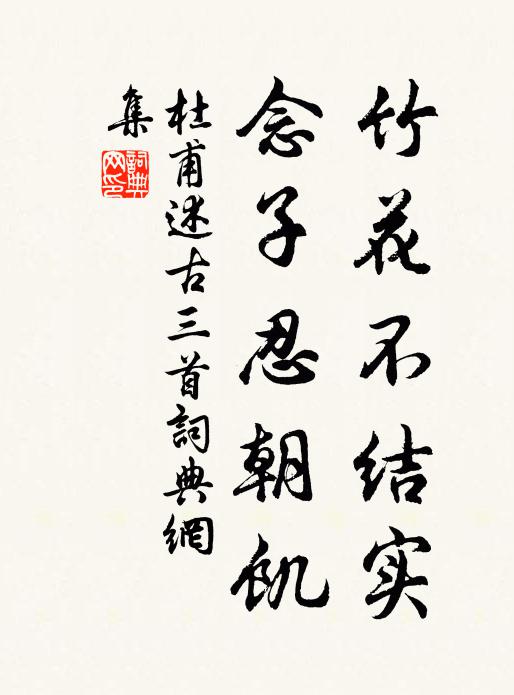 竹花不结实
念子忍朝飢
杜甫述古三首詞典網
集
詞典
网印